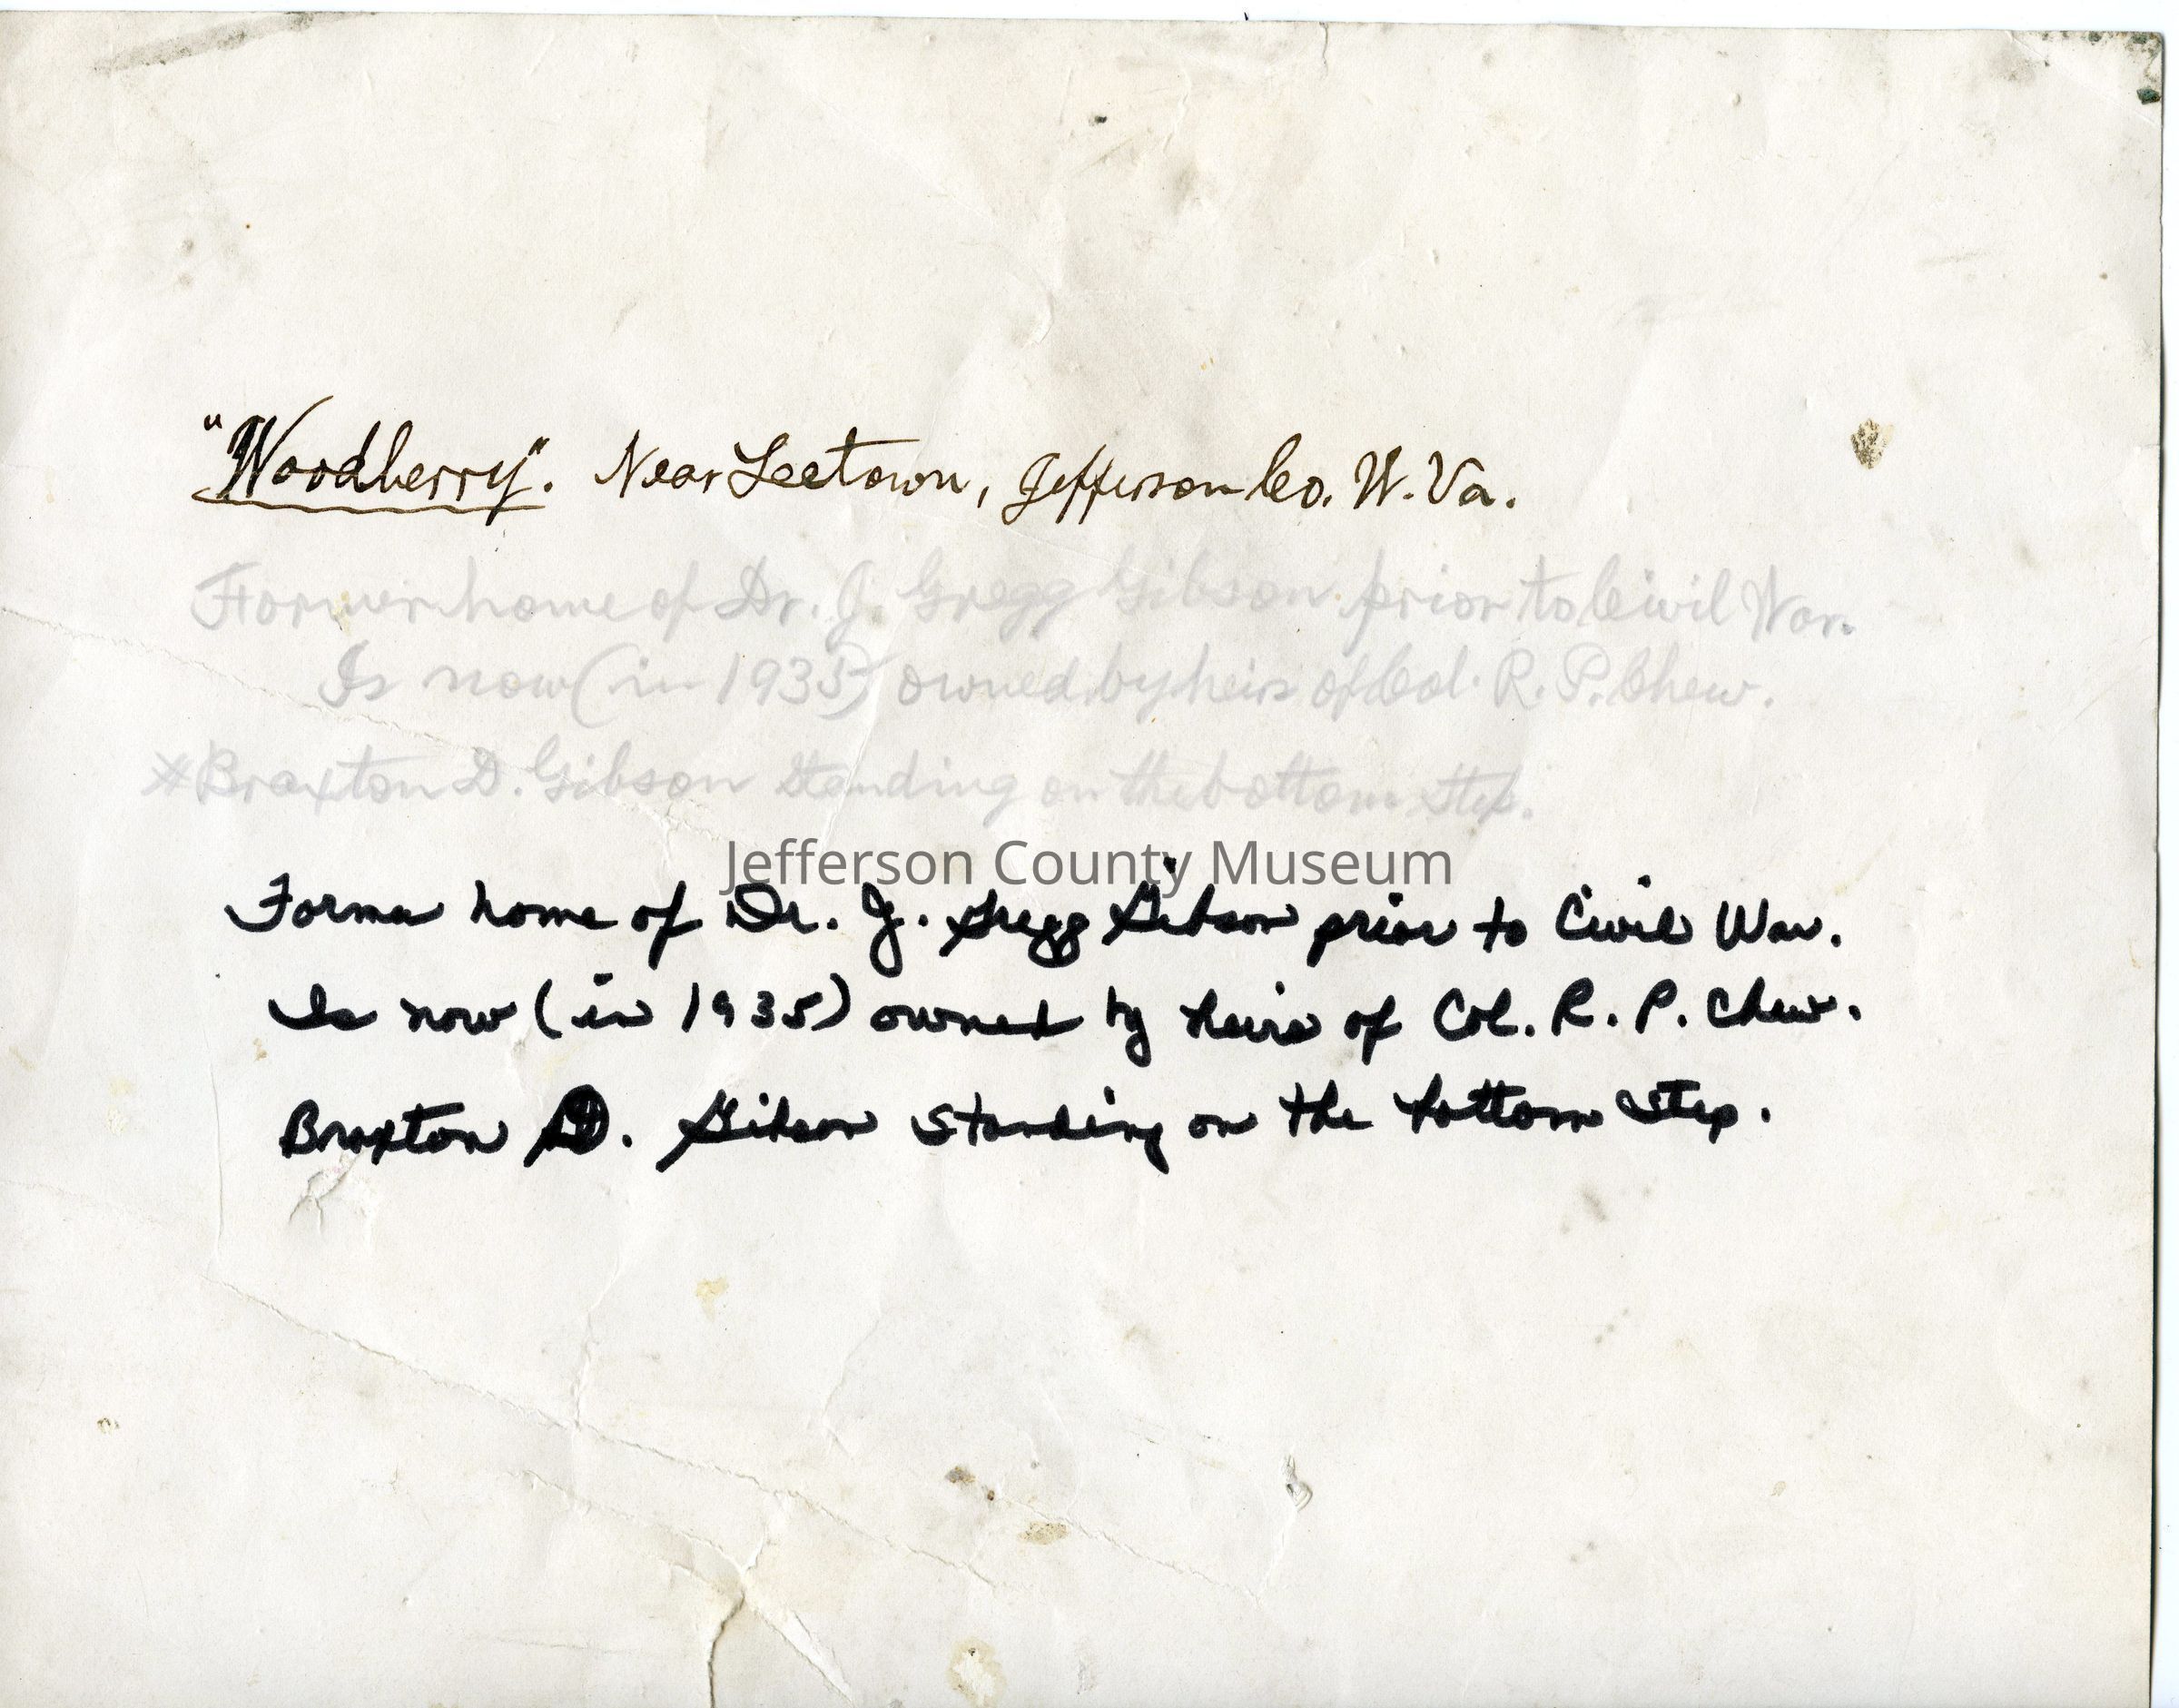 "Woodberry". Near Leetown, Jefferson Co. W. Va.
Former home of Dr. J. Gregg Gibson prior to Civil War.
Is now (in 1935) owned by heirs of Col. R. P. Chew.
*Braxton D. Gibson standing on the bottom step.
Jefferson County Museum
Former home of Dr. J. Gregg Gibson prior to Civil War.
Is now (in 1935) owned by heirs of Col. R. P. Chew.
Braxton D. Gibson standing on the bottom step.